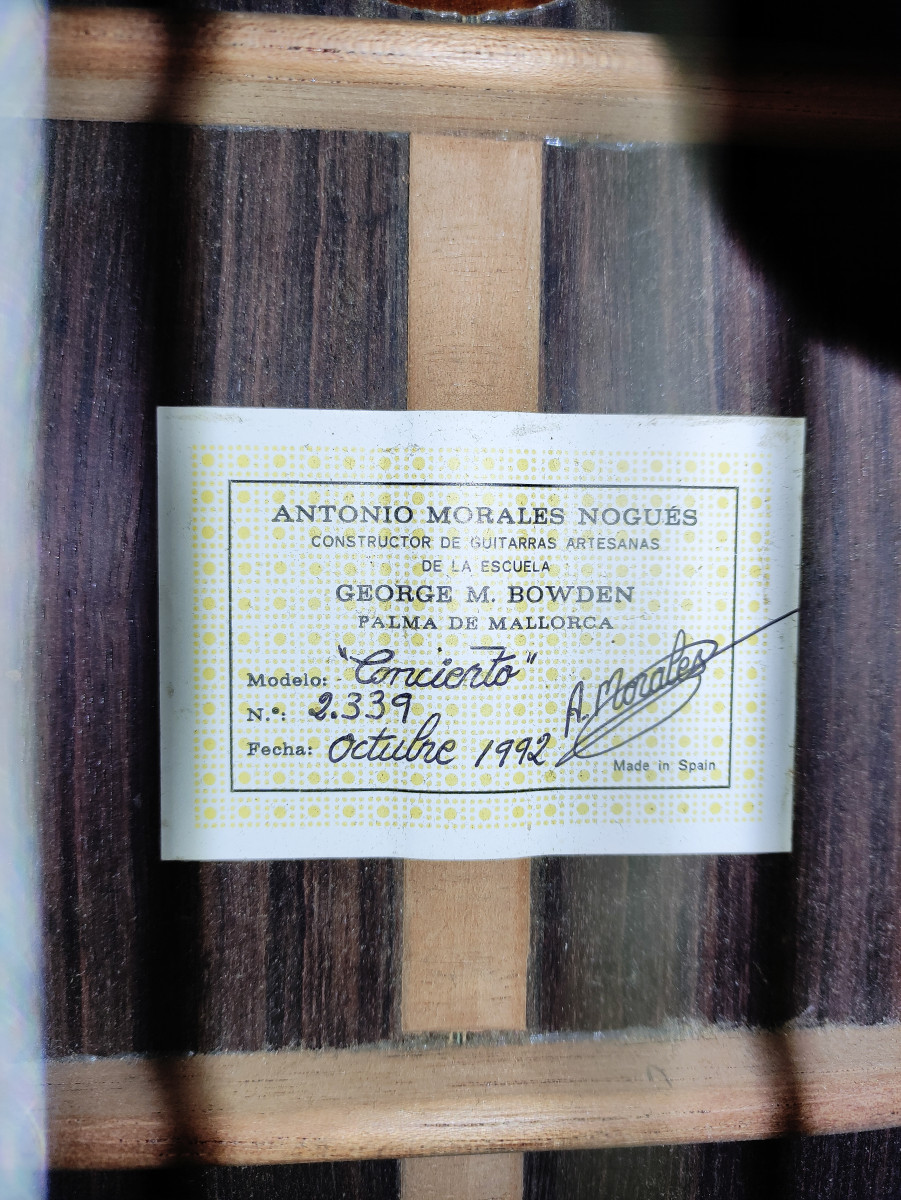 ANTONIO MORALES NOGUÉS
CONSTRUCTOR DE GUITARRAS ARTESANAS
DE LA ESCUELA
GEORGE M. BOWDEN
PALMA DE MALLORCA
Modelo: "Concierto"
N.º: 2.339
A. Morales
Fecha: Octubre 1992
Made in Spain